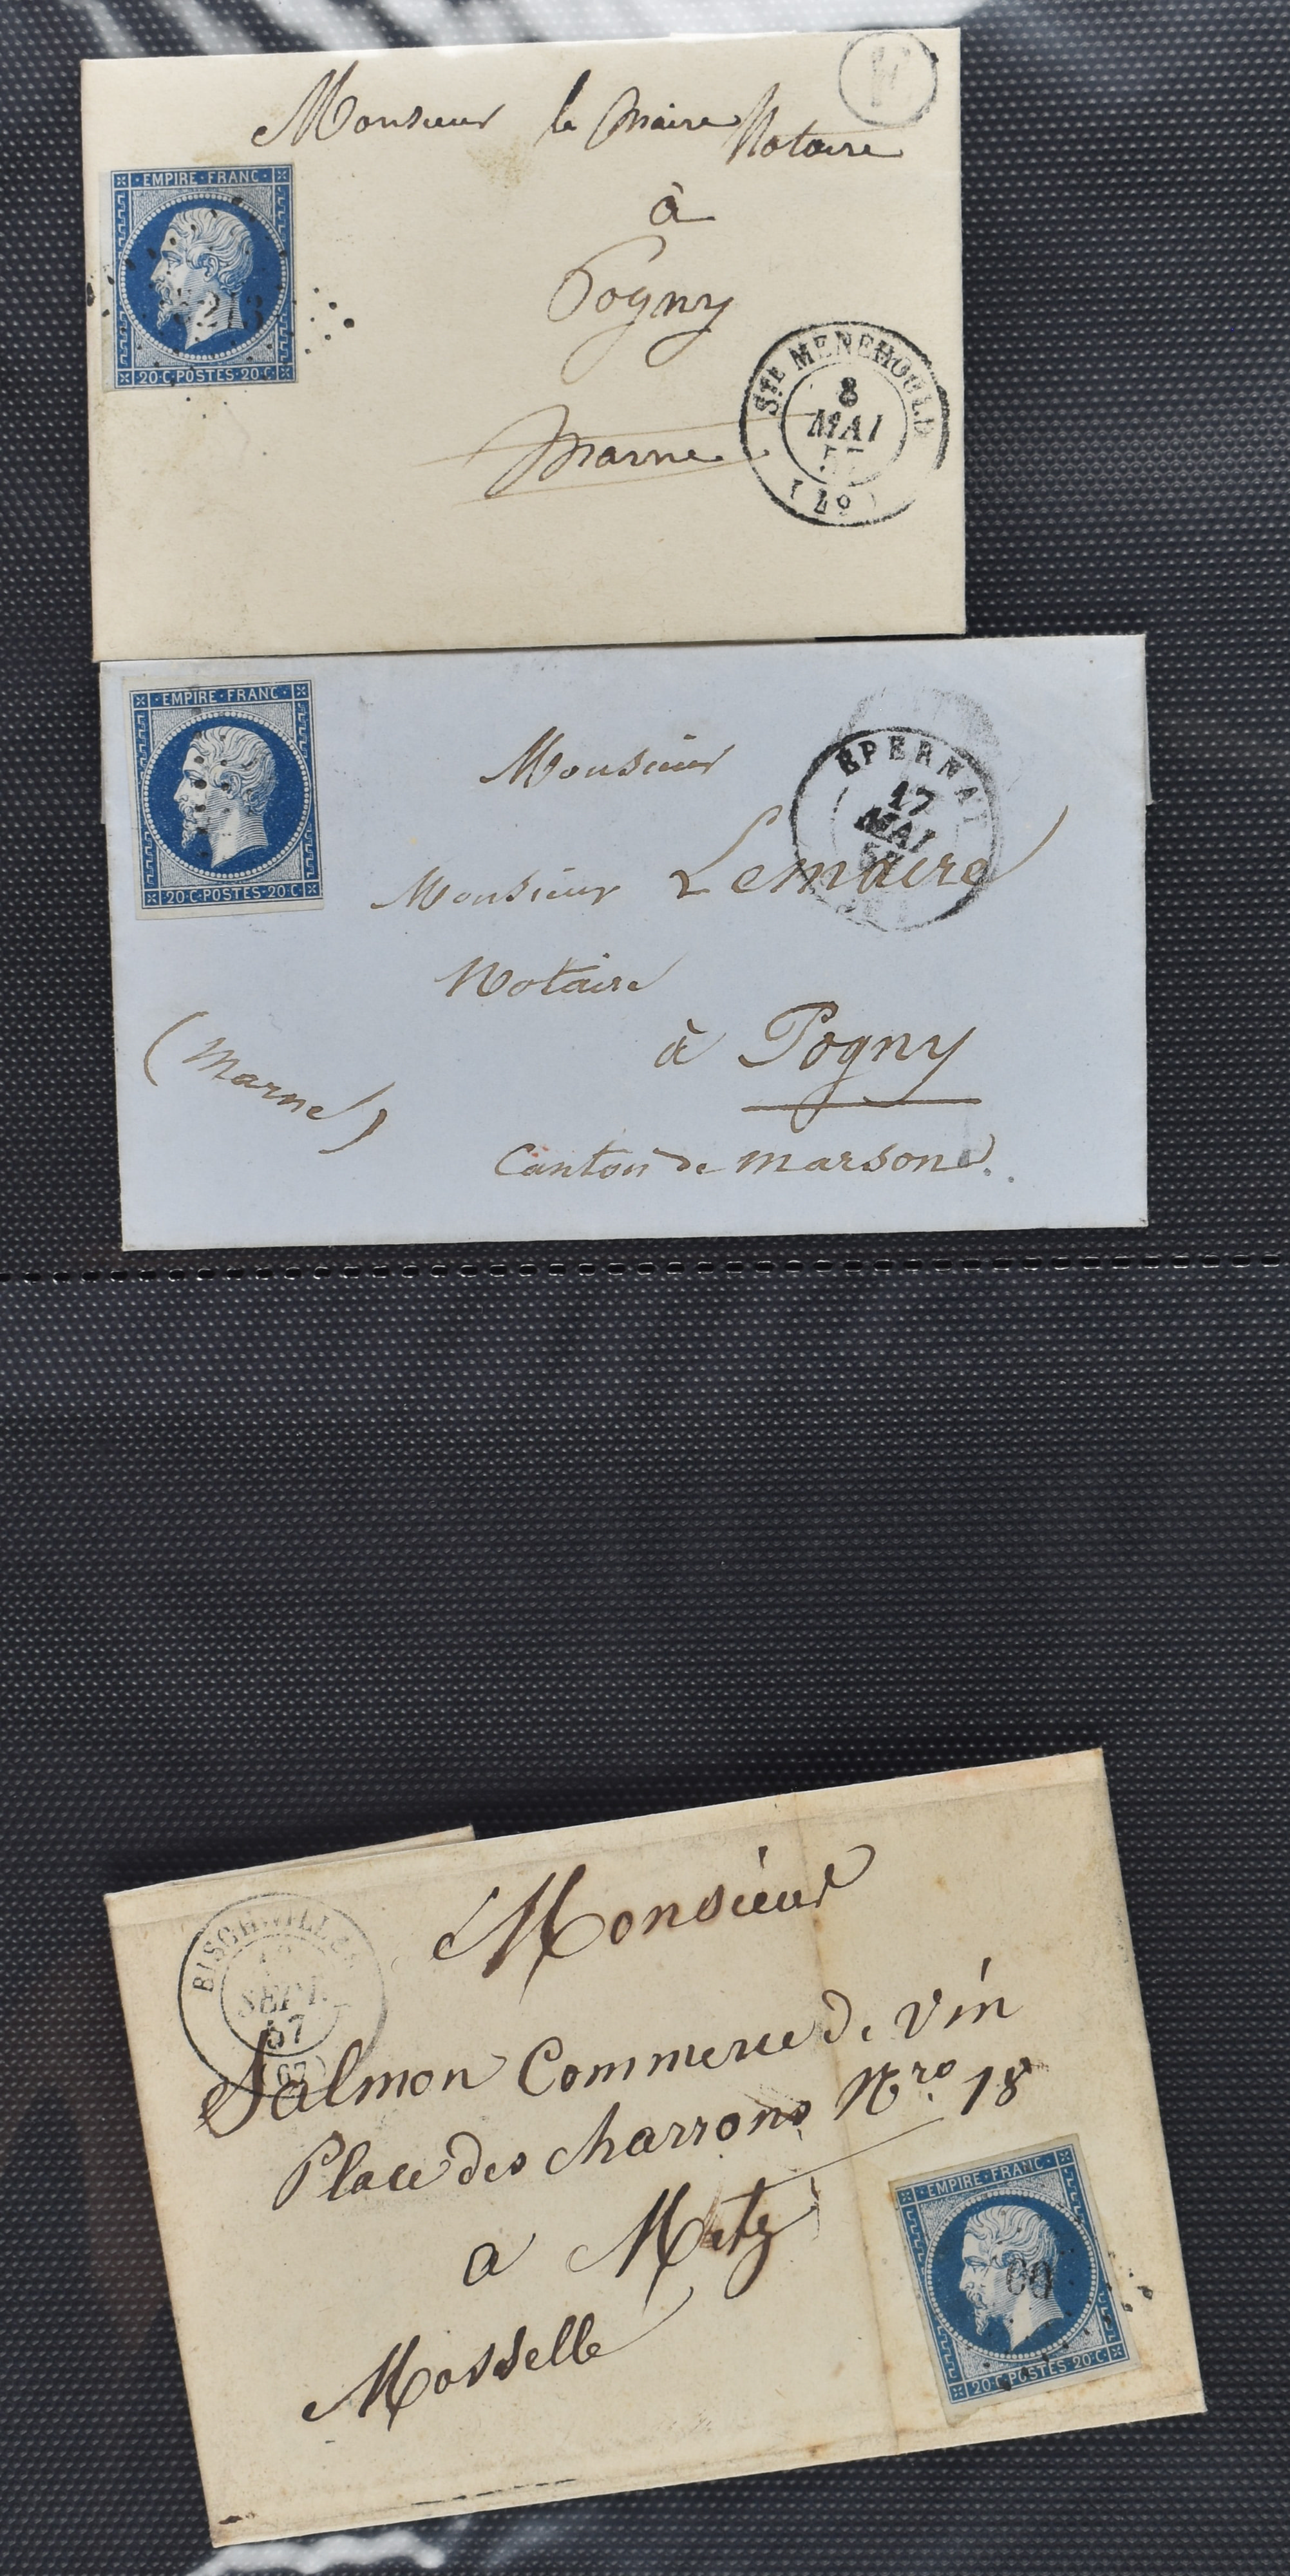 Monsieur le Maire Notaire
à
Pogny
Marne
EMPIRE·FRANC·
20·C·POSTES·20·C·
STE MENEHOULD
8
MAI
57
(49)
EMPIRE·FRANC·
20·C·POSTES·20·C·
EPERNAY
17
MAI
Monsieur
Monsieur Lemaire
Notaire
à Pogny
(Marne)
Canton de marson
BISCHWILLER
SEPT.
57
(67)
Monsieur
Salmon Commerce de vin
Place des charrons Nro. 18
a Metz
Mosselle
EMPIRE·FRANC·
20·C·POSTES·20·C·